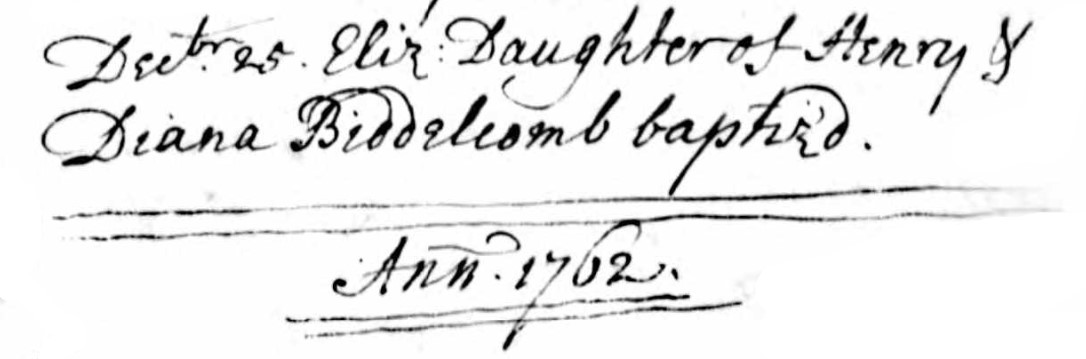 Decbr. 25. Eliz: Daughter of Henry &
Diana Biddelcomb baptiz'd.
Ann. 1762.